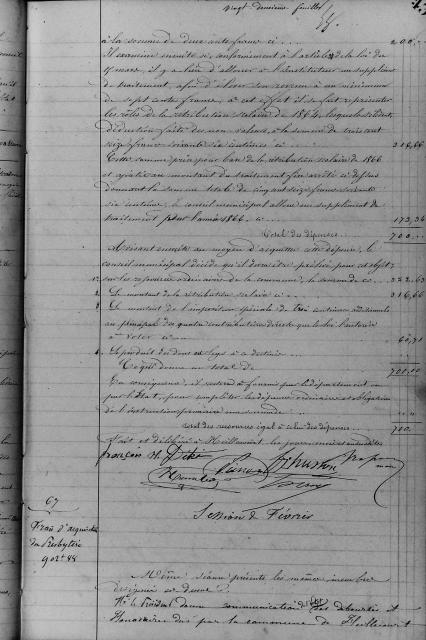 vingt deuxieme feuillet
à la somme de deux cents francs ci ... 200,00
Il examine ensuite si, conformément à l'article de la loi du
mars, il y a lieu d'allouer à l'Instituteur un supplément
de traitement, afin d'élever son revenu à un minimum
de sept cents francs, à cet effet il se fait représenter
les rôles de la rétribution scolaire de 1864, lesquels
déduction faite des non valeurs, à la somme de trois cent
seize francs soixante six centimes ci ... 316,66
Cette somme prise pour base de la rétribution scolaire de 1866
et ajoutée au montant du traitement fixe arrêté ci dessus
donnant la somme totale de cinq cent seize francs soixante
six centimes, le conseil municipal alloue un supplément de
traitement pour l'année 1866 ci ... 183,34
Total des dépenses ... 700,00
Avisant ensuite au moyen d'acquitter cette dépense, le
conseil municipal décide qu'il devra être prélevé pour cet objet,
1° sur les revenus ordinaires de la commune, la somme de ci ... 322,63
2 Le montant de la rétribution scolaire ci ... 316,66
3 Le montant de l'imposition spéciale de trois centimes additionnels
au principal des quatre contributions directes que la loi l'autorise
à voter ci ... 60,71
4 Le produit des dons et legs à ce destinés ...
Ce qui donne un total de ... 700,00
En conséquence, il restera à fournir par le département ou
par l'État, pour compléter les dépenses ordinaires et obligatoires
de l'instruction primaire une somme de ...
Total des ressources égal à celui des dépenses ... 700,
Fait et délibéré à Heillecourt les jour, mois et an
françois
Session de Février
67
Frais d'acquisition
du Presbytère
902f 88
Même séance présents les mêmes membres
désignés ci dessus
Mr le Président donne communication de l'état des déboursés et
honoraires dus par la commune de Heillecourt